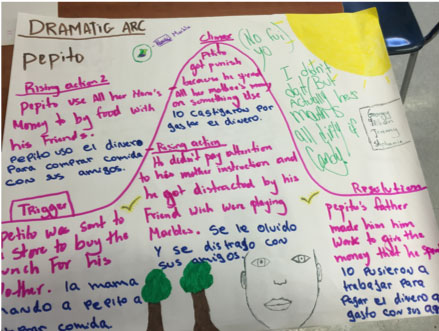 DRAMATIC ARC
Pepito
Rising action 2
Pepito use All her Mom's
Money to by food with
his Friends.
Pepito uso el dinero
Para comprar comida
con sus amigos.
Trigger
Petito was sent to
store to buy the
unch For his
other. la mama
mando a Pepito a
comida
Climax
Petito
got punish
because he spend
All her mother's money
on something else
10 castigaron por
gastar el dinero.
Rising action
He didn't pay attention
to his mother instruction and
he got distracted by his
Friend wich were playing
Marbles. Se le olvido
Y se distrajo con
sus amigos.
(No fui
yo
I didn't
do it But
Actually has
mom's
all
candy
Resolution
pepito's father
made him him
Work to give the
money that he spen
10 Pusieron a
trabajar Para
Pagar el dinero q
gasto con sus a